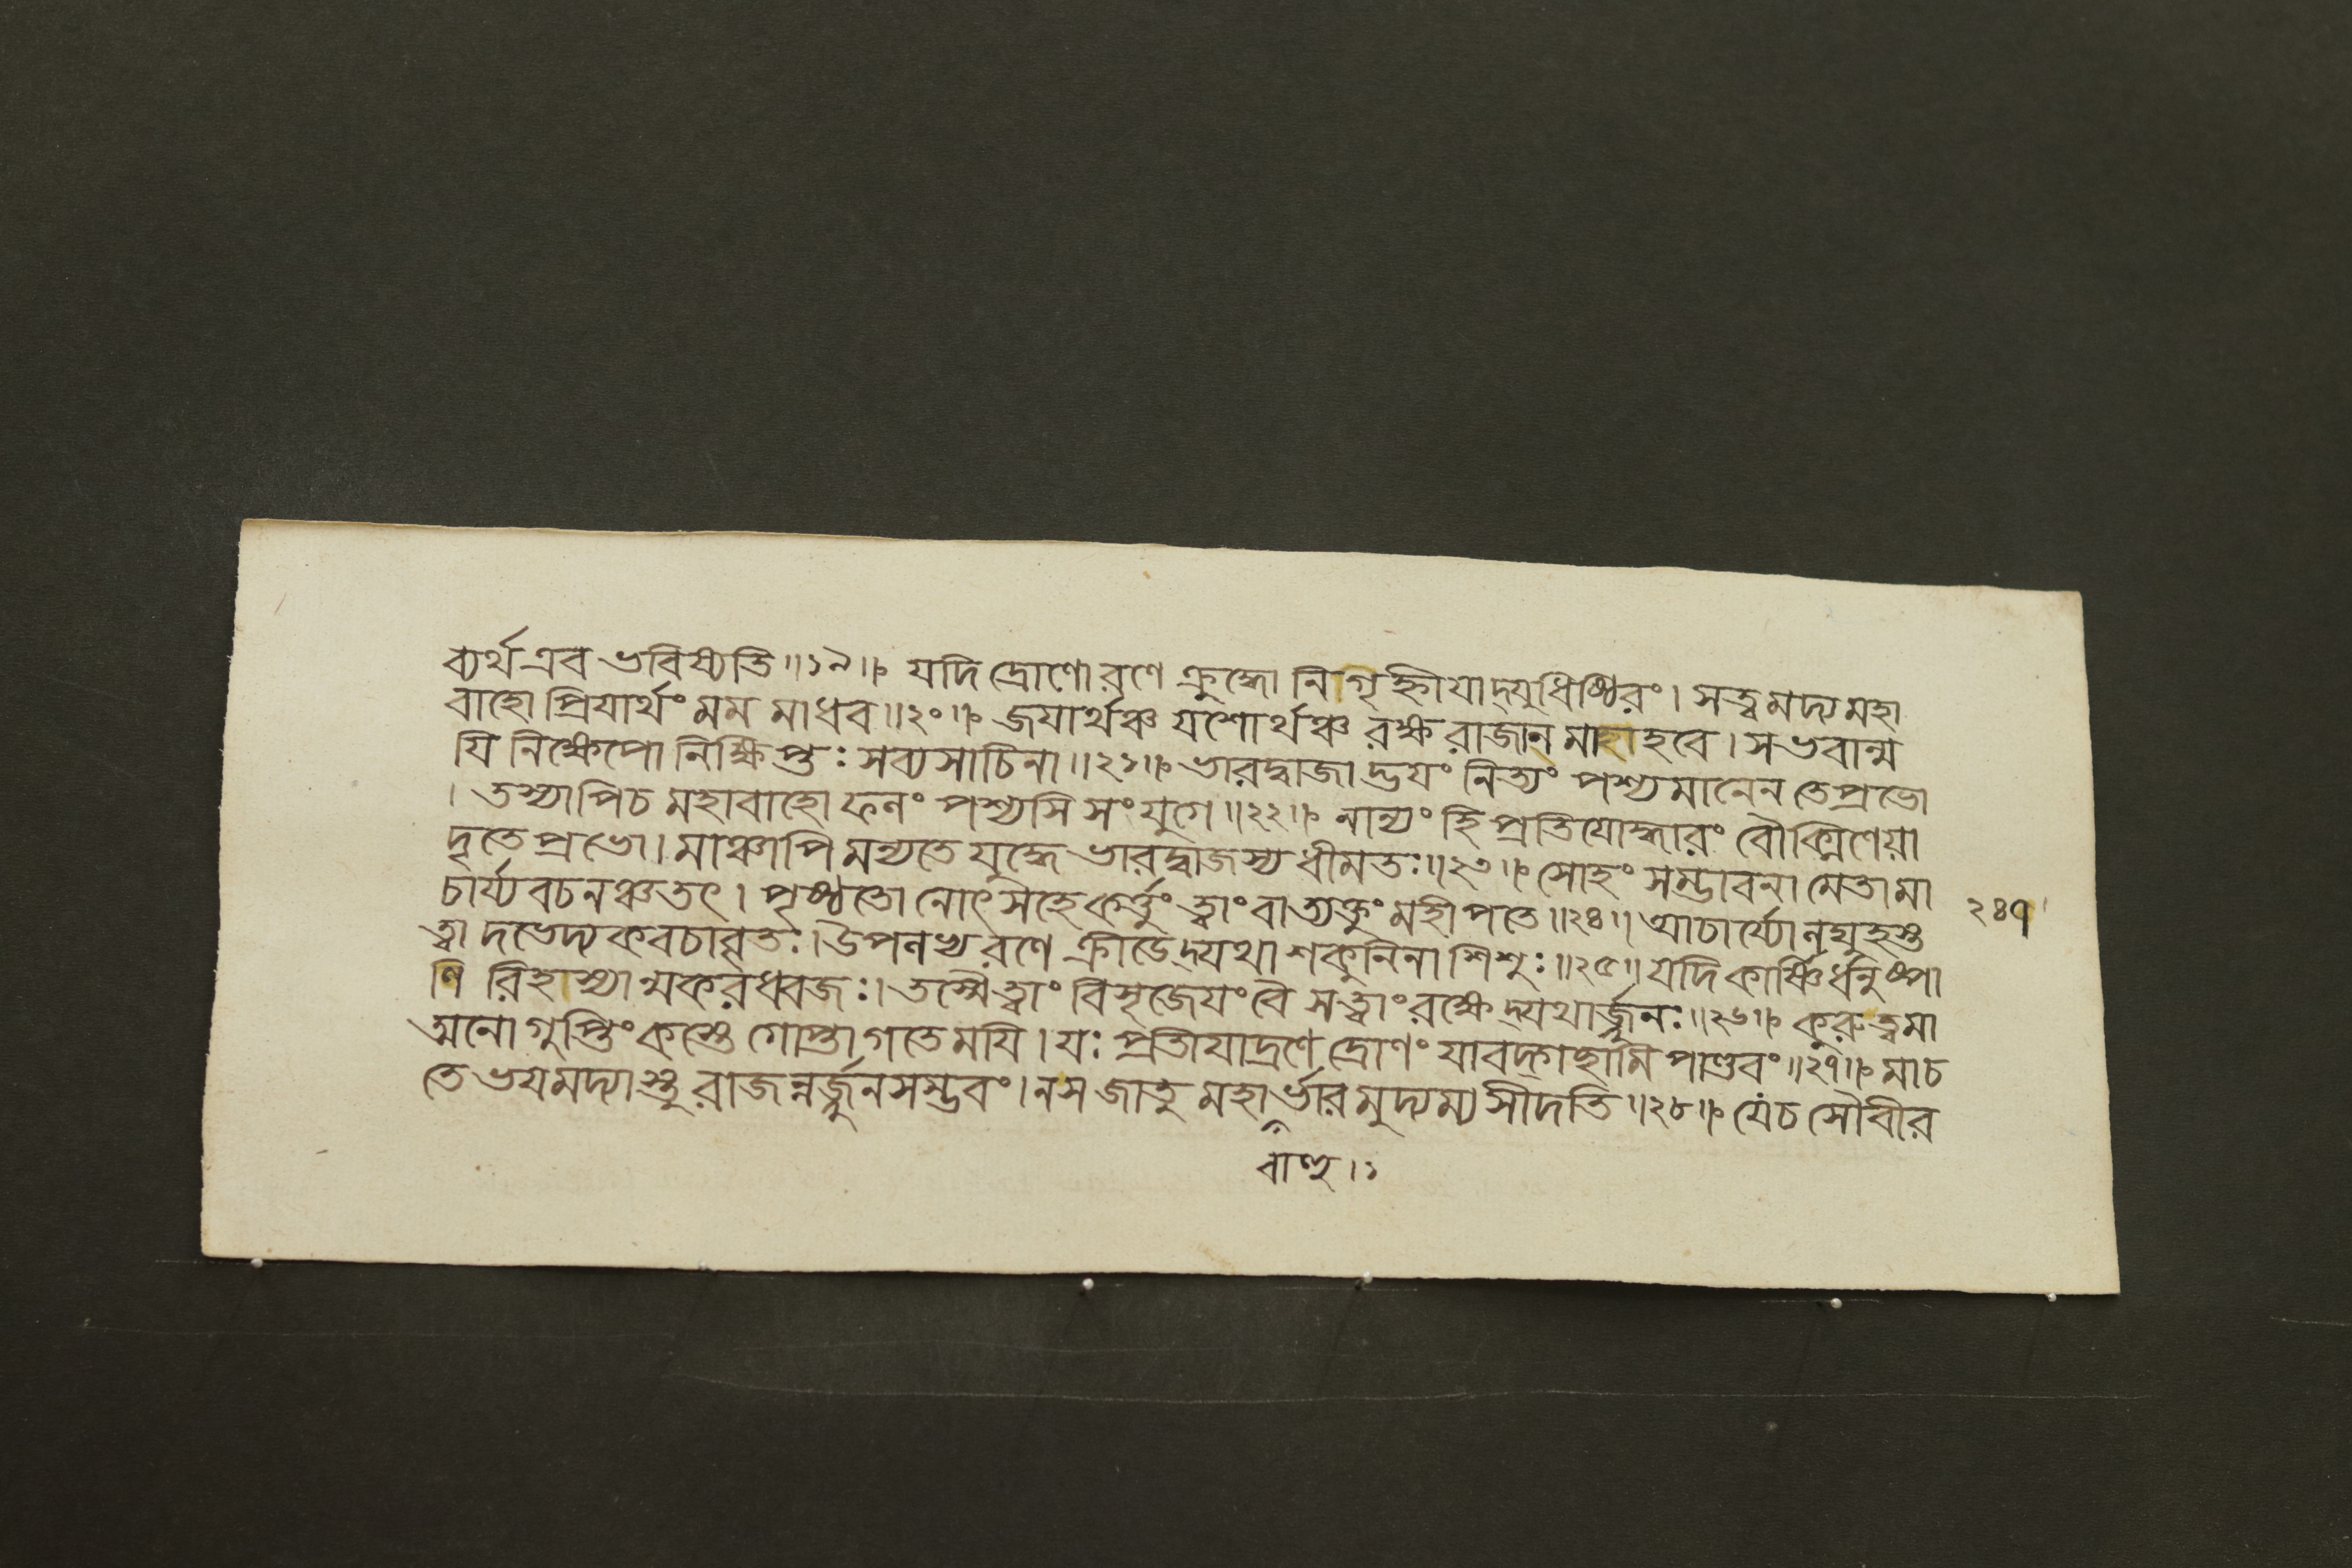 ব্যর্থ এব ভবিষ্যতি ॥১৯॥ যদি দ্রোণো রণে ক্রুদ্ধো নিগৃহ্নীযাদ্যুধিষ্ঠিরং। সত্বমদ্য মহা
বাহো প্রিযার্থং মম মাধব॥২০॥ জযার্থঞ্চ যশোর্থঞ্চ রক্ষ রাজানমাহাহবে। স ভবান্ম
যি নিক্ষেপো নিক্ষিপ্তঃ সব্যসাচিনা॥২১॥ ভারদ্বাজাদ্ভযং নিত্যং পশ্যমানেন তে প্রভো
। তস্যাপি চ মহাবাহো ফনং পশ্যসি সংযুগে॥২২॥ নান্যং হি প্রতিযোদ্ধারং রৌক্মিণেয়া
দৃতে প্রভো। মাঞ্চাপি মন্যতে যুদ্ধে ভারদ্বাজস্য ধীমতঃ॥২৩॥ সোহং সম্ভাবনামেতামা
চার্য্যবচনঞ্চ তৎ। পৃষ্ঠতো নোৎসহে কর্ত্তুং ত্বাং বা ত্যক্তুং মহীপতে॥২৪॥ আচার্য্যো নঘুহস্ত
ত্বাদভেদ্যকবচাবৃতঃ। উপনভ্য রণে ক্রীডেদ্যথা শকুনিনা শিশুঃ॥২৫॥ যদি কার্ষ্ণির্ধনুষ্পা
ণিরিহাস্যান্মকরধ্বজঃ। তস্মৈ ত্বাং বিসৃজেযং বৈ স ত্বাং রক্ষেদ্যথার্জ্জুনঃ॥২৬॥ কুরু ত্বমা
ত্মনো গুপ্তিং কস্তে গোপ্তা গতে মযি। যঃ প্রতীযাদ্রণে দ্রোণং যাবদ্গচ্ছামি পাণ্ডবং॥২৭॥ মা চ
তে ভযমদ্যাস্তু রাজন্নর্জ্জুনসম্ভবং। ন স জাতু মহার্ভারমুদ্যম্য সীদতি॥২৮॥ যে চ সৌবীর
বাহু।১
২৪৭